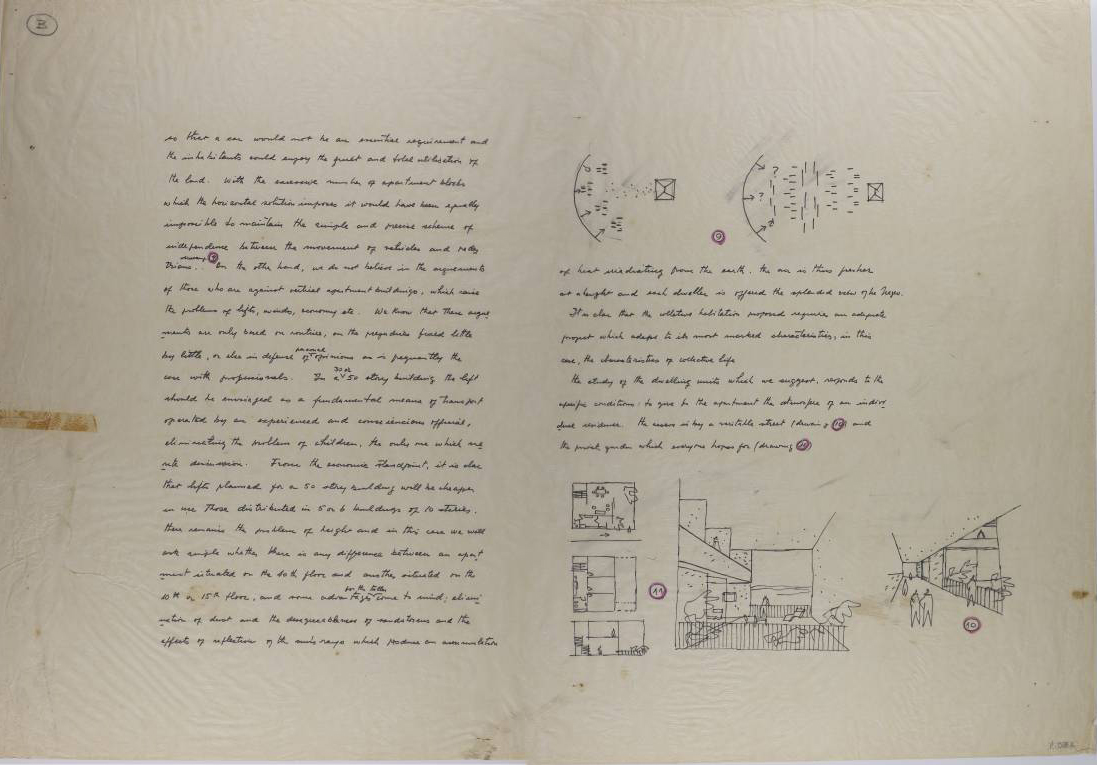 B
so that a car would not be an essential requirement and
the inhabitants could enjoy the full and total utilisation of
the land. With the excessive number of apartment blocks
which the horizontal solution imposes it would have been equally
impossible to maintain the simple and precise scheme of
independence between the movement of vehicles and pedes
trians. drawing 9 On the other hand, we do not believe in the arguements
of those who are against vertical apartment buildings, which raise
the problems of lifts, winds, economy etc. We know that these argue
ments are only based on routine, on the prejudices fixed little
by little, or else in defense of personal opinions as is frequently the
case with professionals. In a 30 or 50 storey building the lift
should be envisaged as a fundamental means of transport
operated by an experienced and consciencious official,
eliminating the problem of children, the only one which me
rits discussion. From the economic standpoint, it is clear
that lifts planned for a 50 storey building will be cheaper
in use those distributed in 5 or 6 buildings of 10 stories.
there remains the problem of height and in this case we will
ask simple whether there is any difference between an apart
ment situated on the 50th floor and another situated on the
10th or 15th floor, and some advantages for the taller come to mind: elimi
nation of dust and the desagreableness of sandstorms and the
effects of reflection of the suns rays which produce an accumulation
9
of heat irradiating from the earth. the air is thus fresher
at a height and each dweller is offered the splended view of the Negev.
It is clear that the collective habitation proposed require an adequate
project which adapts to its most marked characteristics, in this
case, the characteristics of collective life
the study of the dwelling units which we suggest, responds to the
specific conditions: to give to the apartment the atmospere of an indivi
dual residence. the access is by a veritable street (drawing 10) and
the privat garden which everyone hopes for (drawing 11)
11
10